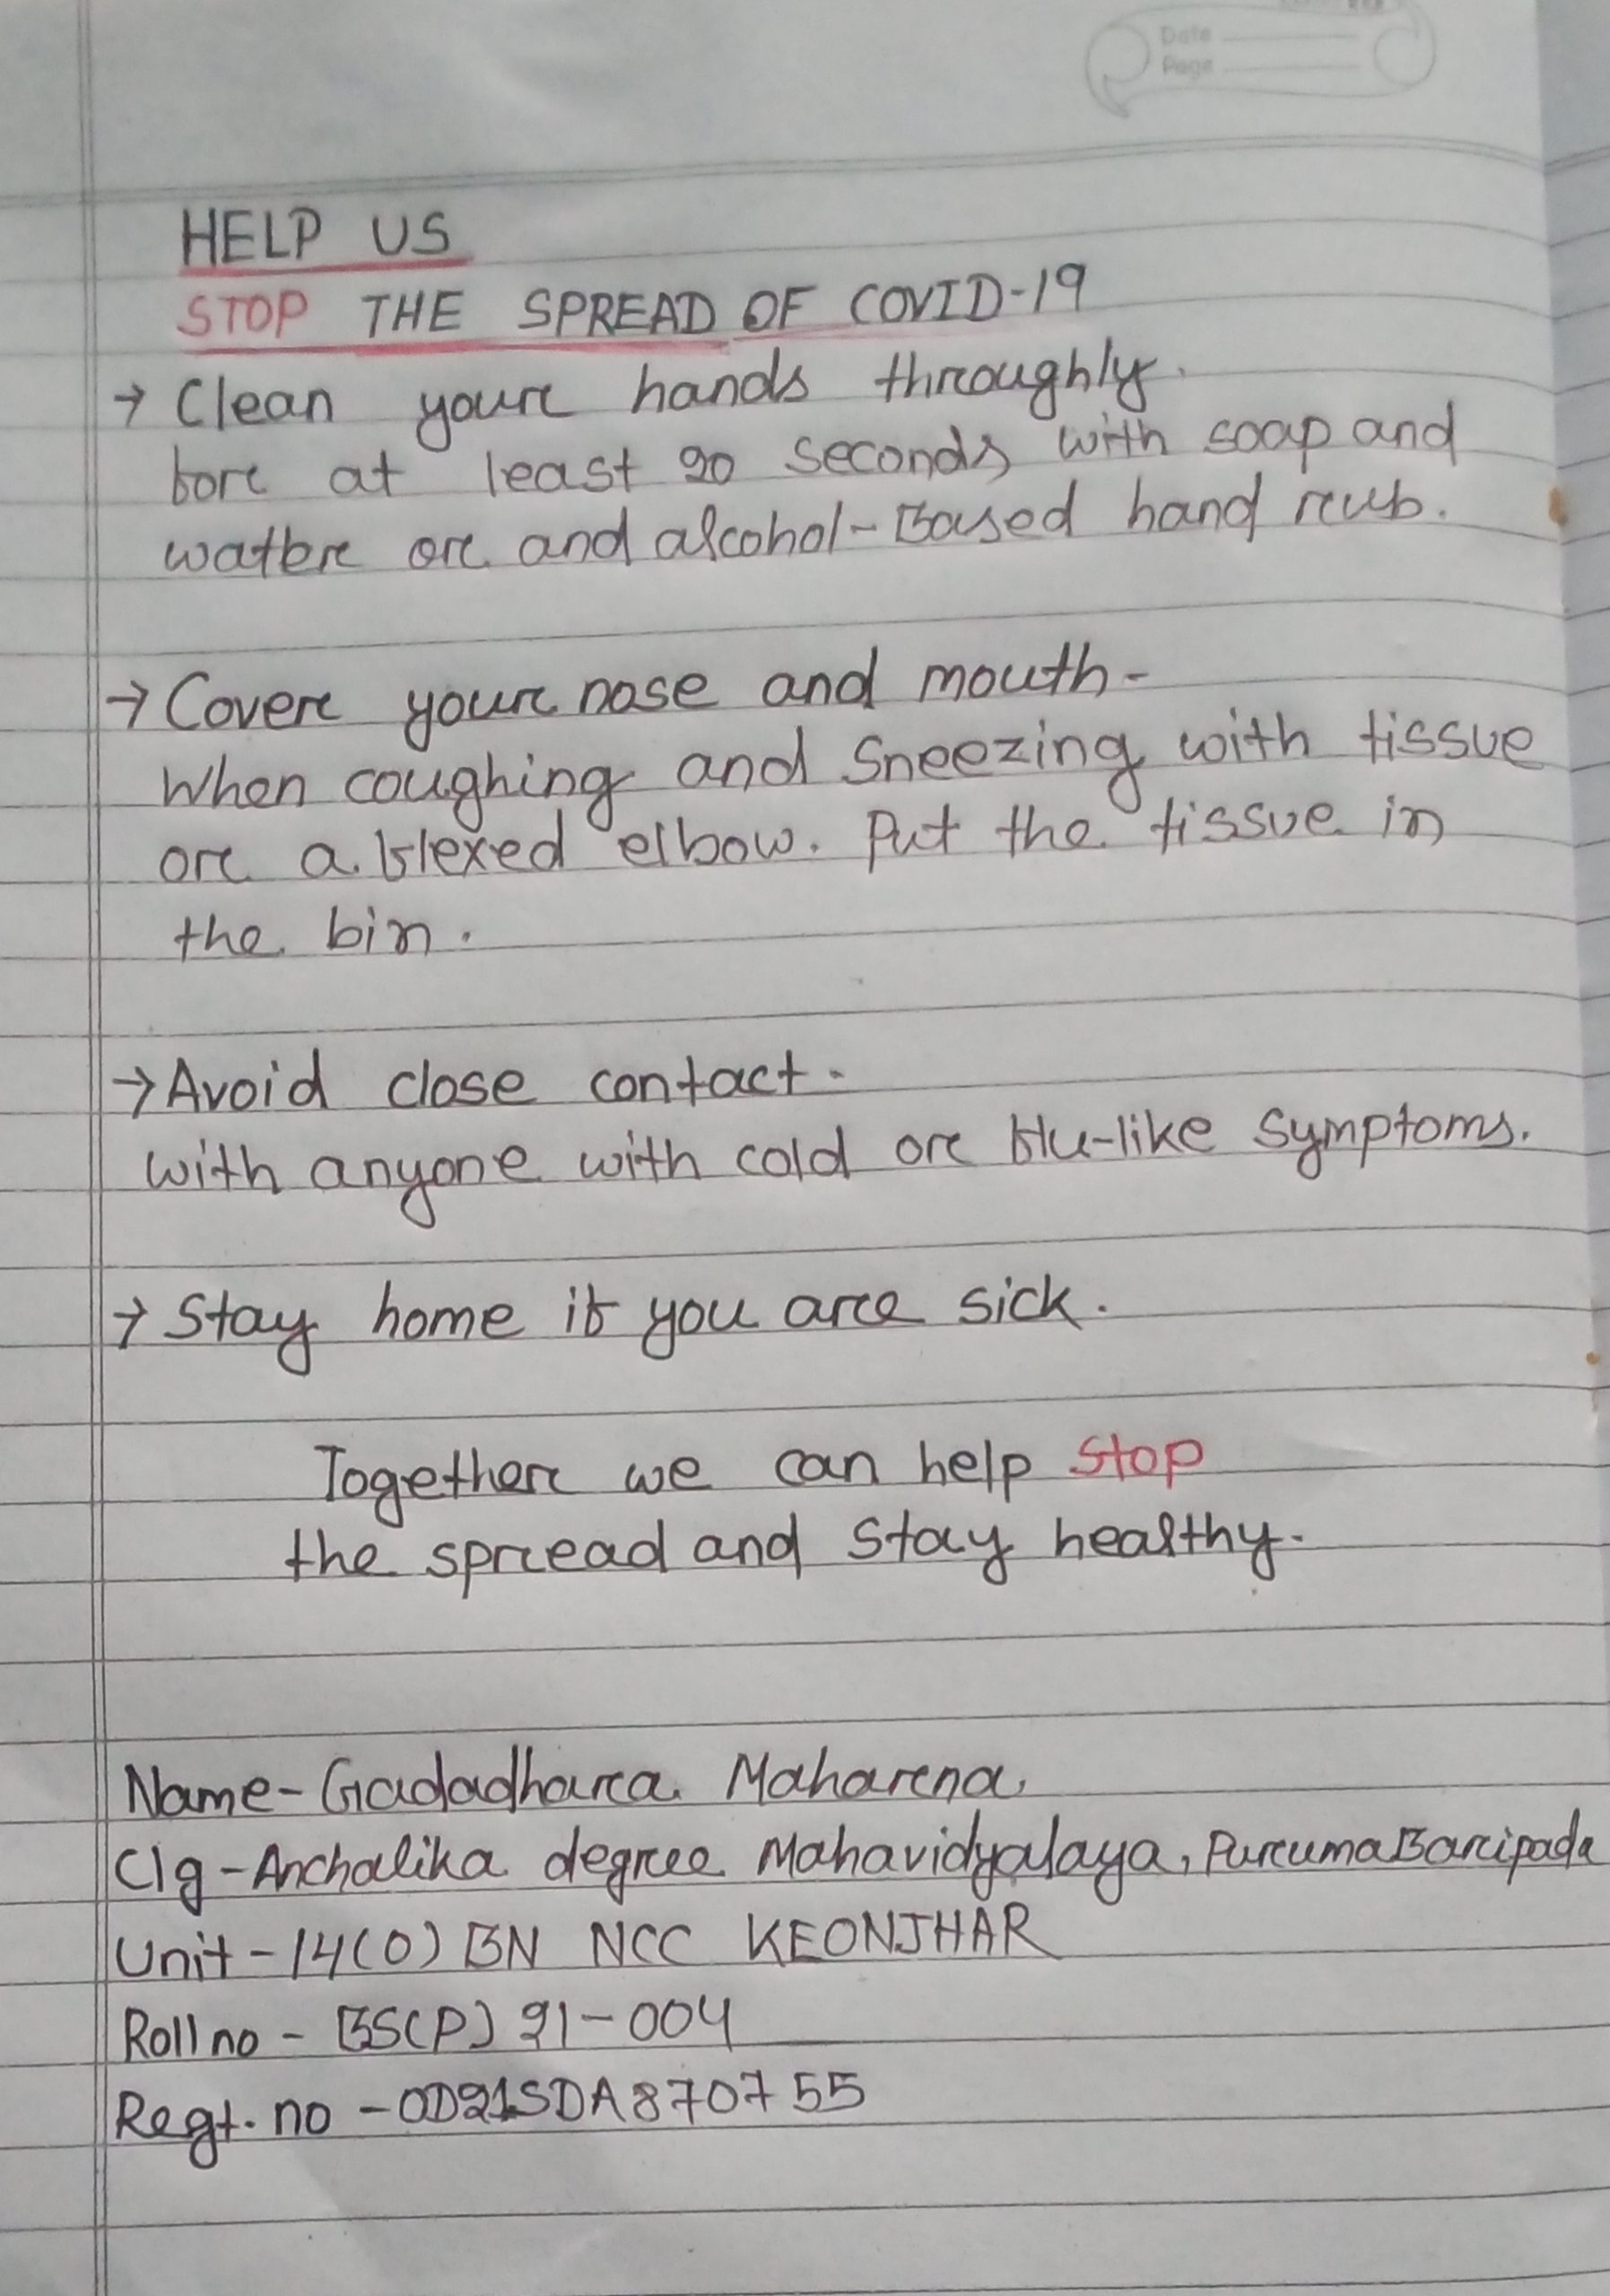 Date
Page
HELP US
STOP THE SPREAD OF COVID-19
→ Clean your hands throughly.
for at least 20 seconds with soap and
water or and alcohol-Based hand rub.
→ Cover your nose and mouth-
When coughing and Sneezing with tissue
or a flexed elbow. Put the tissue in
the bin.
→ Avoid close contact.
with anyone with cold or flu-like Symptoms.
→ Stay home if you are sick.
Together we can help Stop
the spread and Stay healthy.
Name-Gadadhara Maharena
Clg-Anchalika degree Mahavidyalaya, PurumaBaripada
Unit-14(O) BN NCC KEONJHAR
Roll no - BS(P) 21-004
Regt. no - OD21SDA870755